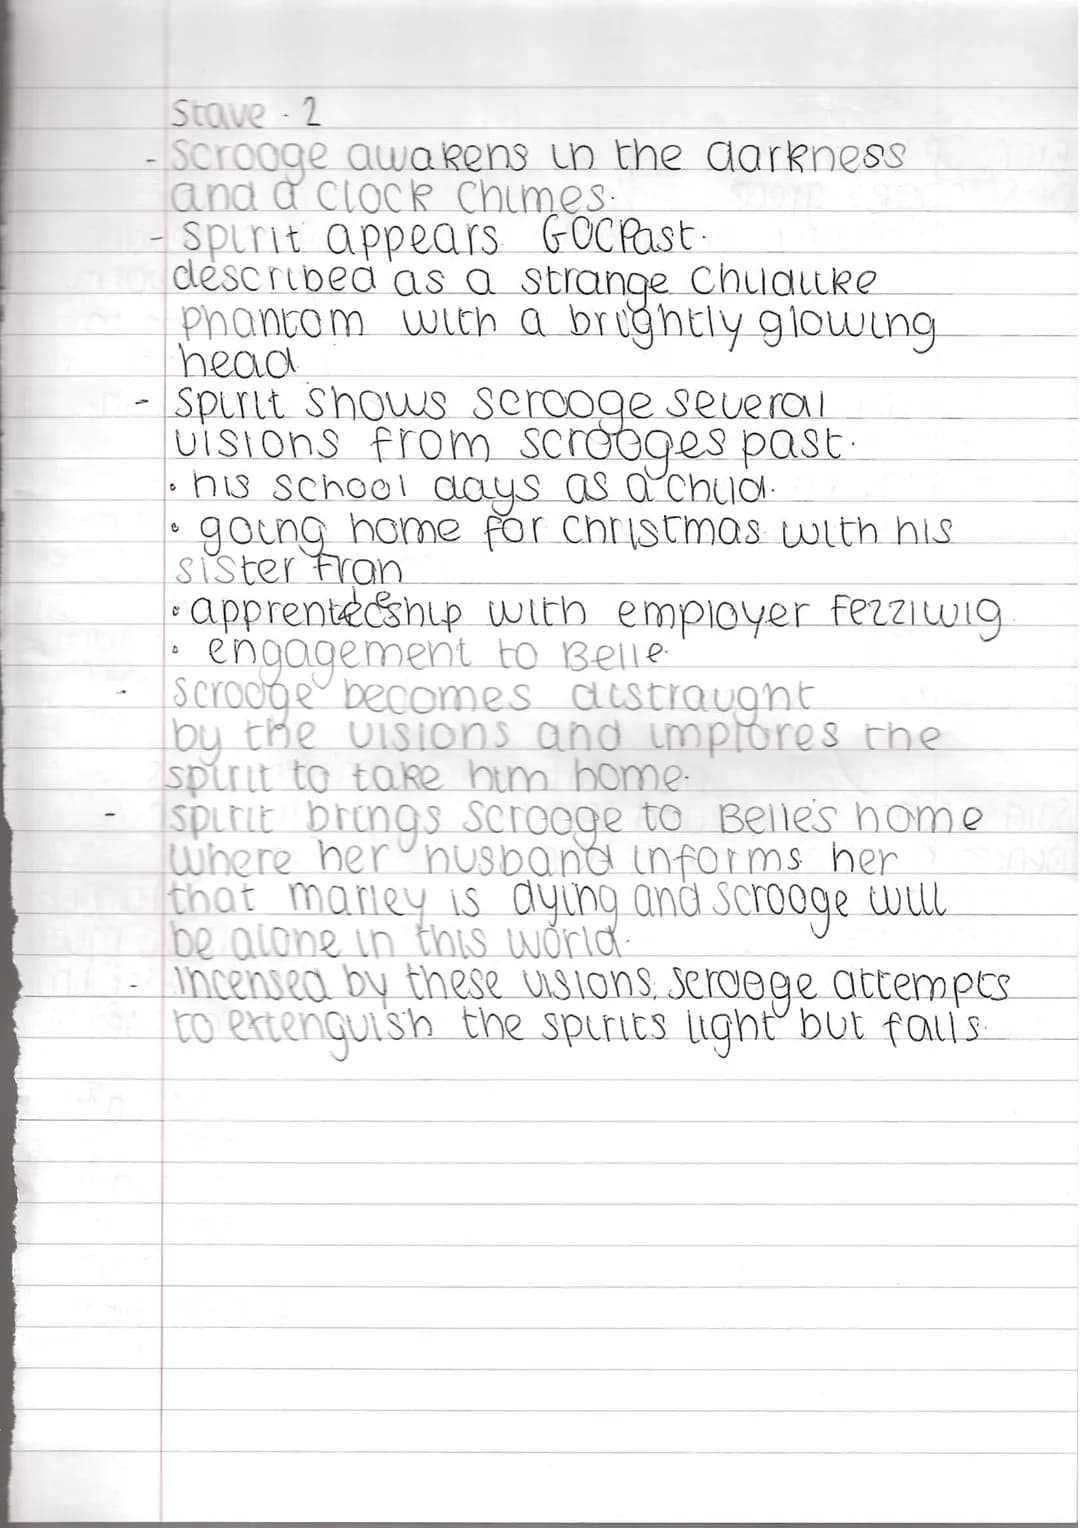 Stave - 2
- Scrooge awakens in the darkness
and a clock chimes.
- Spirit appears GOCPast.
described as a strange childlike
phantom with a brightly glowing
head
- Spirit shows scrooge several
visions from scrooges past.
• his school days as a child.
• going home for christmas with his
sister Fran
• apprenteceship with employer fezziwig
• engagement to Belle.
- Scrooge becomes distraught
by the visions and implores the
spirit to take him home.
- spirit brings Scrooge to Belle's home
where her husband informs her
that marley is dying and scrooge will
be alone in this world.
- incensed by these visions, scrooge attempts
to extenguish the spirits light but fails.